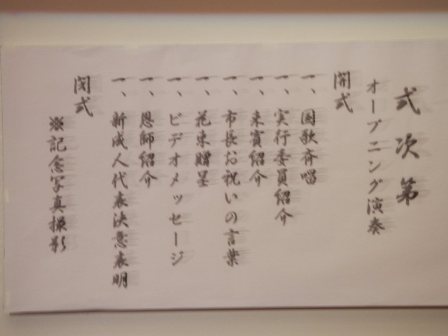 式次第
オープニング演奏
開式
一、国歌斉唱
一、実行委員紹介
一、来賓紹介
一、市長お祝いの言葉
一、花束贈呈
一、ビデオメッセージ
一、恩師紹介
一、新成人代表決意表明
閉式
※記念写真撮影